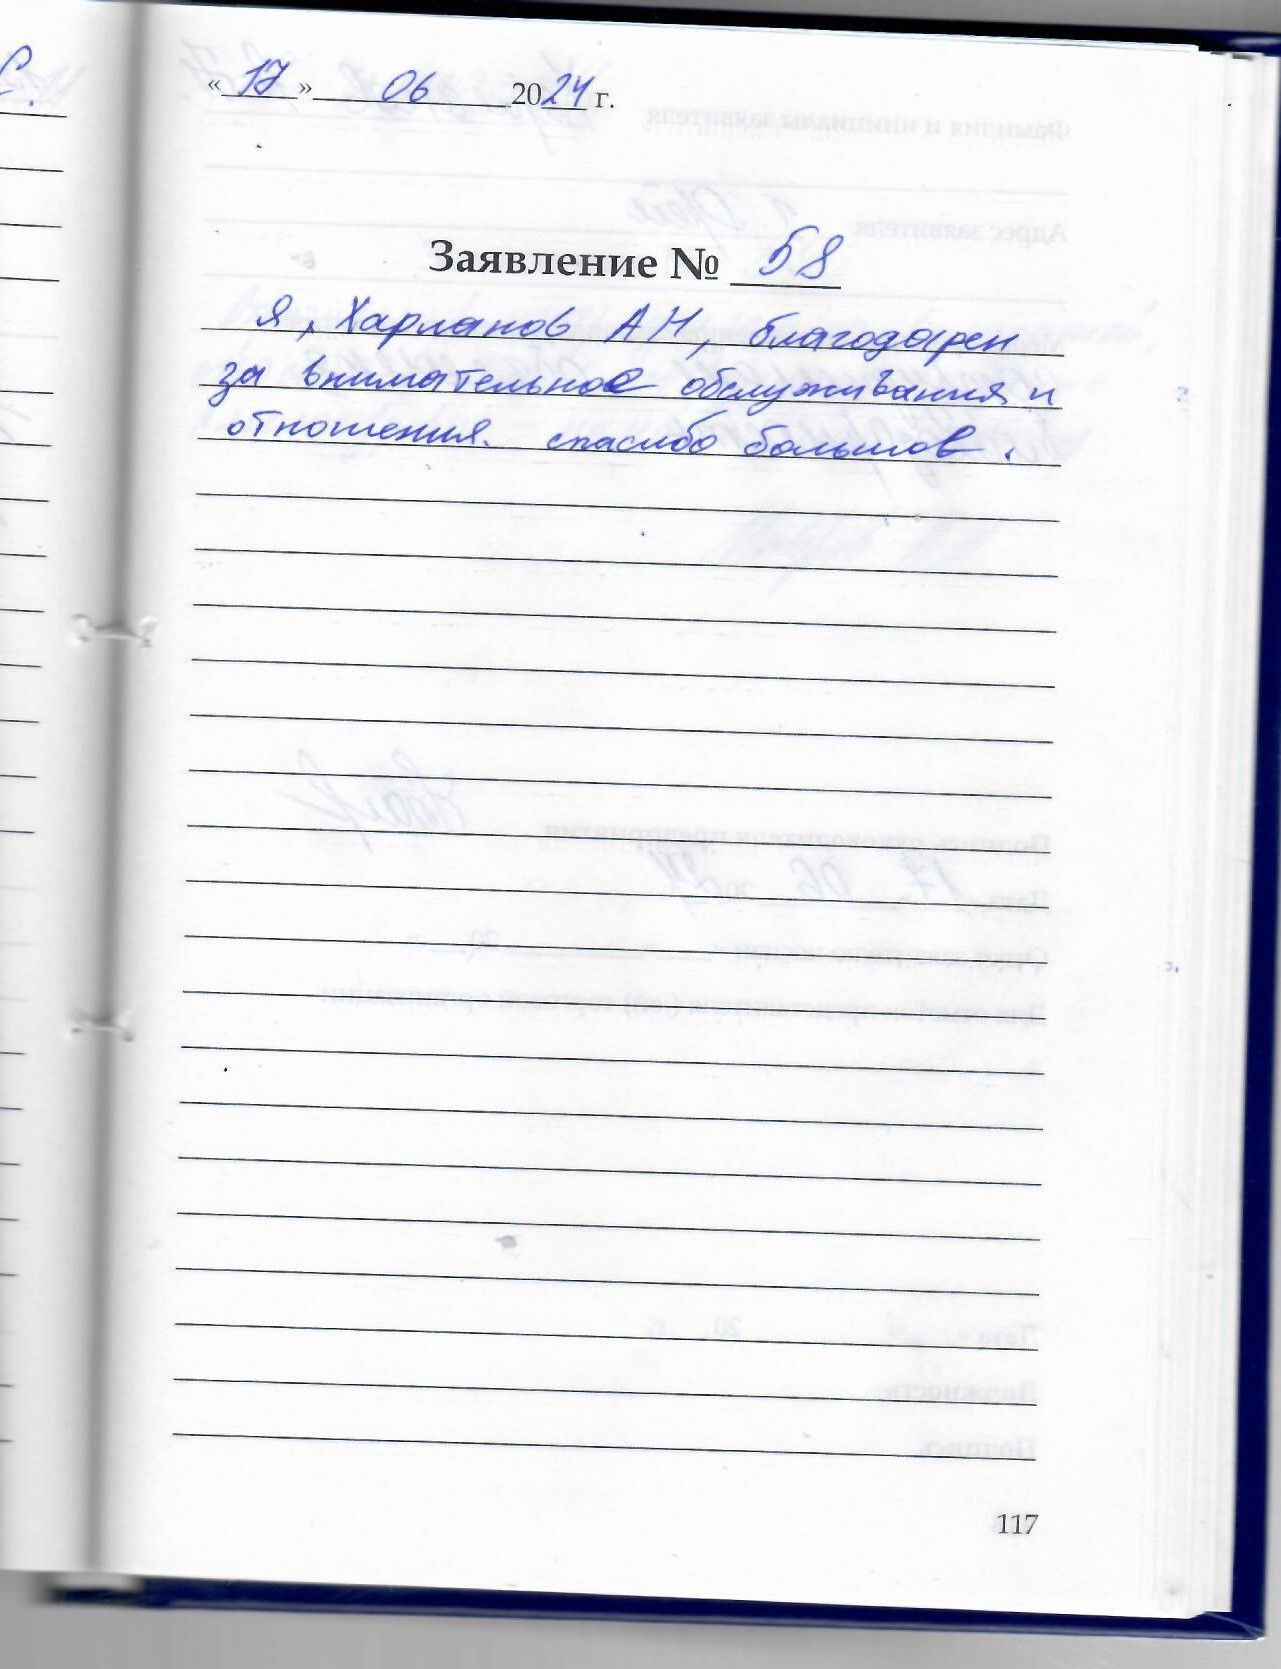 «17» 06 2024 г.
Заявление № 58
Я, Харланов А Н, благодарен
за внимательное обслуживания и
отношения. спасибо большое.
117